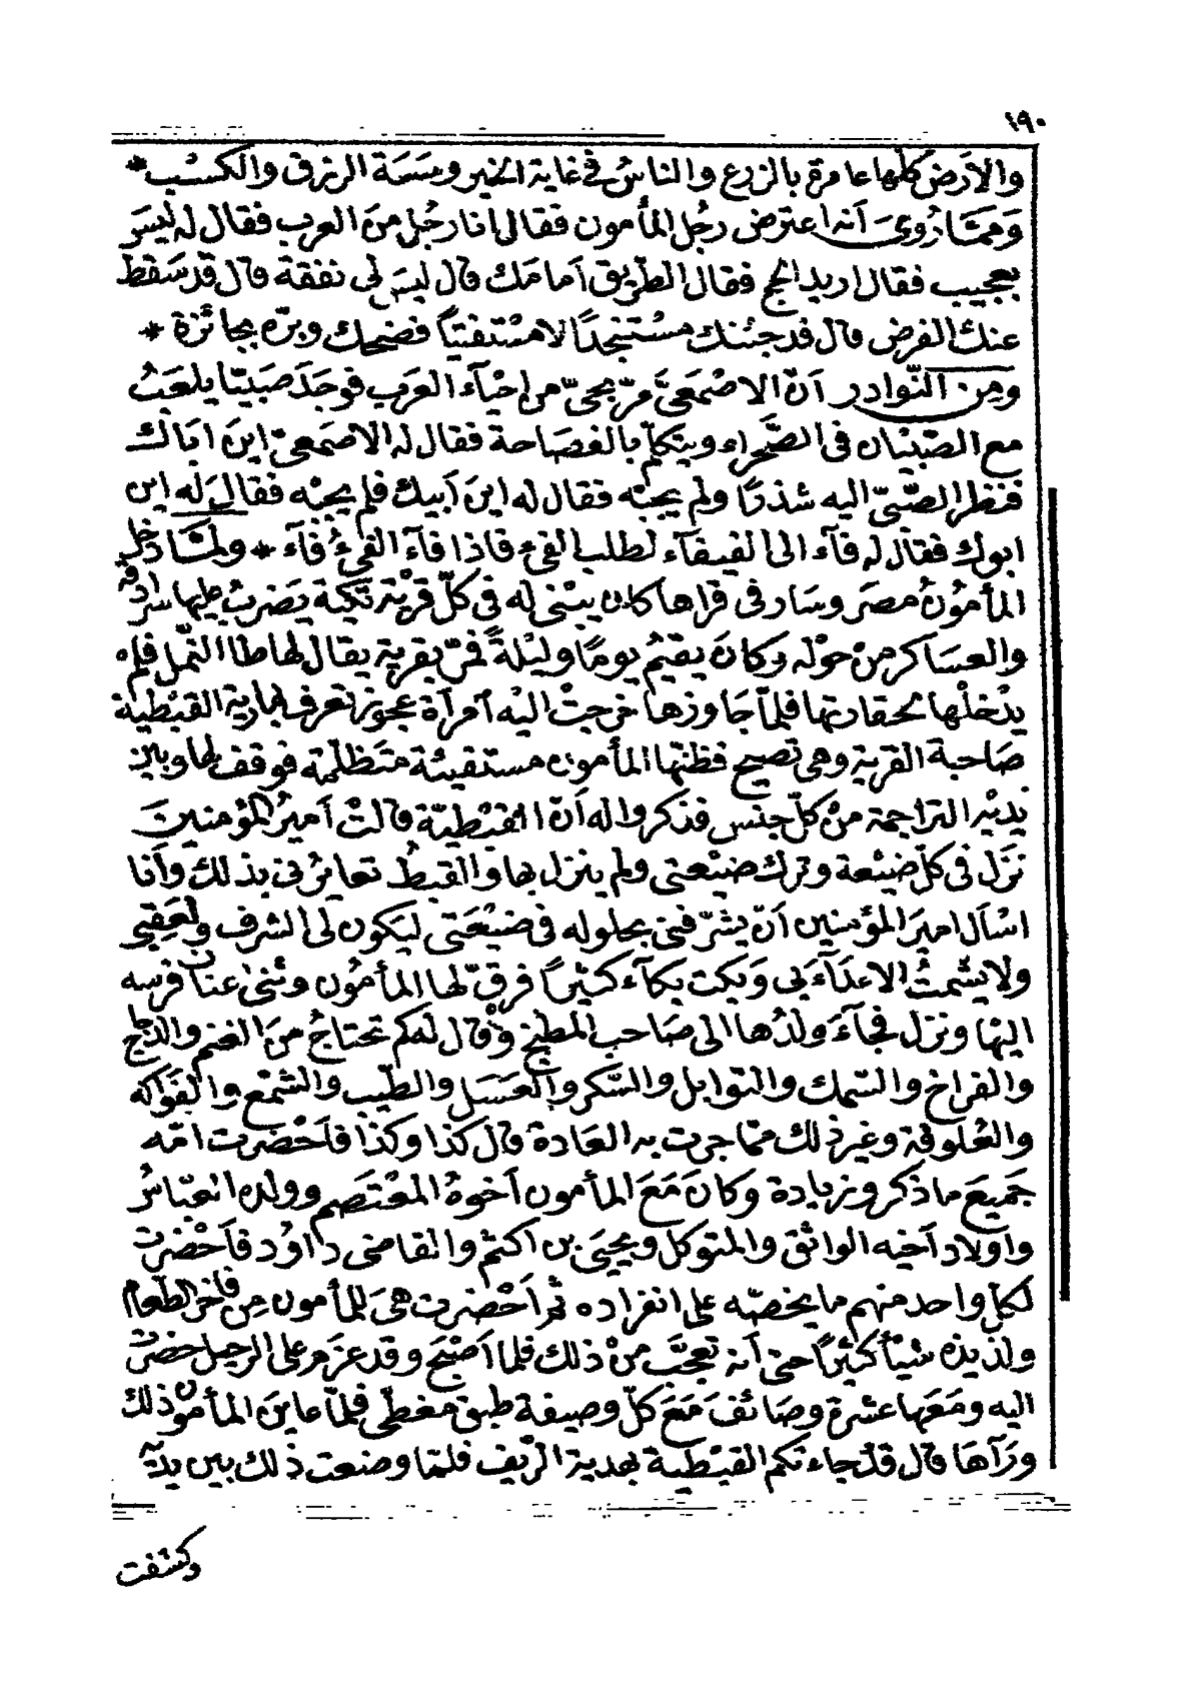 ١٩٠
والاَرض كلّها عامرة بالزرع والناسُ فى غاية الخير وسَعَة الرزق والكسْب *
وَممّا رُوىَ اَنه اعترض رجُل المأمون فقال انا رجُل منَ العرب فقال له ليسَ
بعجيب فقال اريد الحج فقال الطّريق اَمامَك قال ليسَ لى نفقة قال قد سَقط
عنك الفرض قال قد جئتك مسْتنجدًا لا مسْتفتيًا فضحك وبرّه بجائزة *
ومِن النّوادر اَنّ الاصْمَعىَّ مرّ بحىّ من احْيآء العَرَب فوجَدَ صَبيّا يلعَبُ
مع الصّبْيان فى الصَّحراء ويتكلّم بالفصَاحة فقال له الاصمَعىّ اينَ اباك
فنظر الصّبىّ اليه شذرًا ولم يجبْه فقال له اينَ اَبيك فلم يجبْه فقالَ له اين
ابوك فقال له فآء الى الفيفآء لطلب الفئ فاذا فآءَ الفئُ فآءَ * ولمّا دخل
المأمُونُ مصرَ وسَار فى قراها كان يبْنى له فى كلّ قرْية تكية يَضربُ عليها سُرادقه
والعسَاكر منْ حوْله وكانَ يقيمُ يومًا وليْلةً فمرّ بقرية يقال لها طا النّمل فلم
يدْخلْها لحقارتها فلمّا جَاوزها خرجتْ اليْه اَمرأة عجوز تعرف بمارية القبْطيّة
صَاحبة القرية وهى تصيح فظنّها المأمون مستغيثة متَظلّمة فوقف لها وبين
يديْه التراجمة منْ كلّ جنس فذكروا له اَنّ القبْطيّة قالتْ اَميرُ المؤمنينَ
نَزَل فى كلّ ضيْعة وترك ضيْعتى ولم ينزل بها والقبطُ تعايُرنى بذلك وَاَنا
اسْاَل اميرَ المؤمنين اَنْ يشرّفنى بحلوله فى ضيْعَتى ليَكون لى الشرف ولعَقِبى
ولا يشمتُ الاعدآءَ بى وَبكت بكآء كثيرًا فرقّ لها المأمُون وثنىٰ عنان فرسه
اليْها ونزل فجآءَ ولدُها الى صَاحب المطبخ وَقال له كم تحتاجُ منَ الغنم والدّجاج
والفراخ والسّمك والتوابل والسّكر والعَسَل والطّيب والشمْع والفَوَاكه
والعُلوفة وغير ذلك ممّا جرت به العَادة قال كذا وكذا فاَحْضَرت امّه
جَميعَ ما ذكر وزيادة وكانَ مَعَ المأمون اَخوهُ المعْتَصم وولده العبّاسُ
واولاد اَخيه الواثق والمتوكل ويحيىَ بن اكتم والقاضى داوُد فاَحْضرت
لكل واحد منهم ما يخصّه على انفراده ثم اَحْضرت هىَ للمأمون مِن فاخر الطّعام
ولذيذه شيْأ كثيرًا حتى اَنه تعجّبَ منْ ذلك فلما اَصْبَح وقد عزَم على الرحيل حضرَتْ
اليه ومَعَها عشرة وصَائفَ مَعَ كلّ وصيفة طبق مغطّى فلمّا عاينَ المأمُون ذلك
ورَآهَا قال قدْ جاءتكم القبْطيّة بهدية الرّيف فلمّا وضعت ذلك بين يديْه
وكشفت